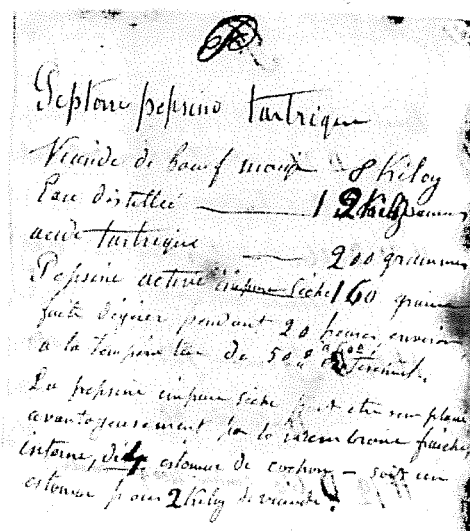 Peptone pepsino tartrique
Viande de bœuf maigre 8 Kilog
Eau distillée 12 Kilogrammes
acide tartrique 200 grammes
Pepsine active impure sèche 160 grammes
faite digérer pendant 20 heures environ
à la température de 50
La pepsine impure sèche peut être remplacée
avantageusement par la membrane fraîche
interne, de 4 estomac de cochon – soit un
estomac pour 2 Kilog de viande.